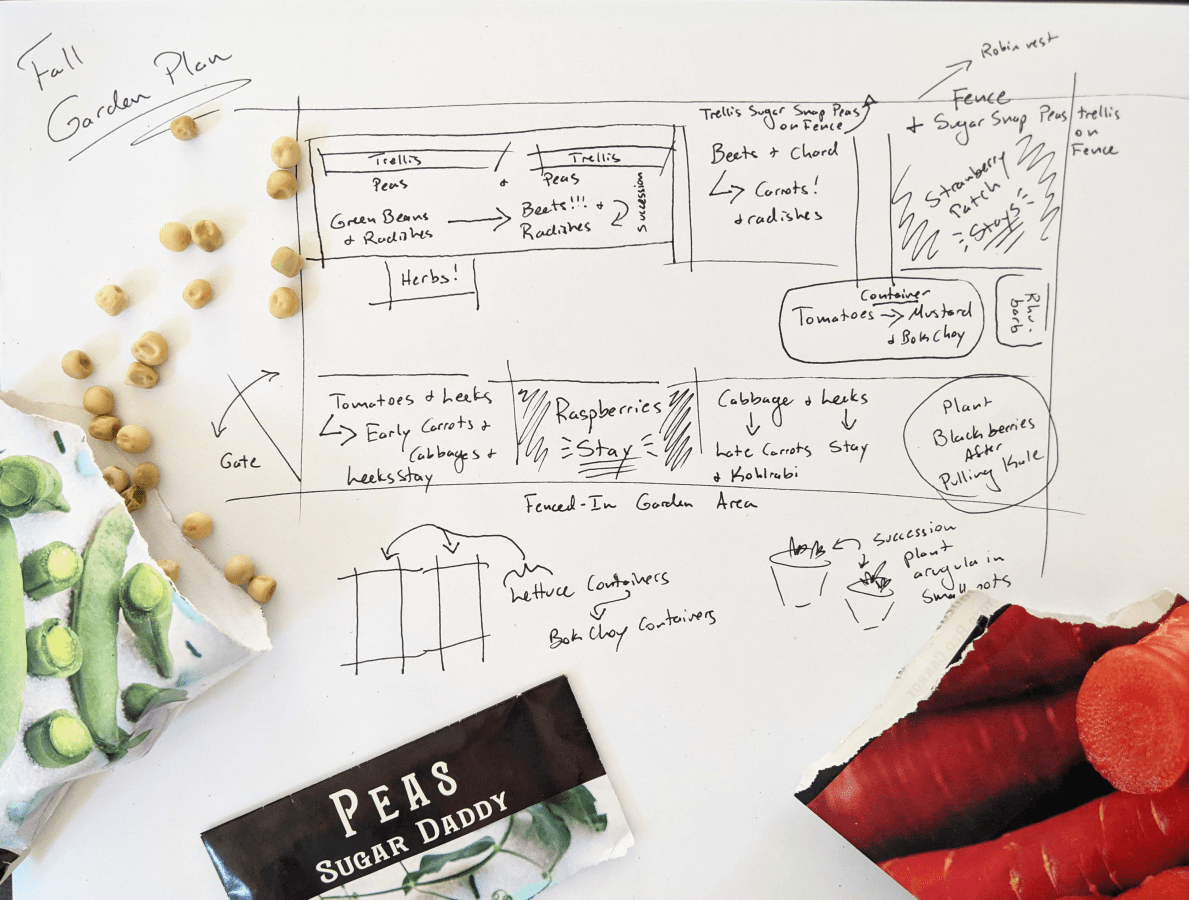 Fall
Garden Plan
Robin vest
Fence
+ Sugar Snap Peas
trellis
on
Fence
Trellis Sugar Snap Peas
on Fence
Trellis
Trellis
Peas
+
Peas
Green Beans
+ Radishes
Beets!!! +
Radishes
Succession
Herbs!
Beets + Chord
Carrots!
+ radishes
Strawberry
Patch
Stays
Container
Tomatoes → Mustard
+ Bok Choy
Rhu-
barb
Gate
Tomatoes + Leeks
Early Carrots +
Cabbages +
Leeks Stay
Raspberries
Stay
Cabbage + Leeks
Late Carrots Stay
+ Kohlrabi
Plant
Blackberries
After
Pulling Kale
Fenced-In Garden Area
Lettuce Containers
Bok Choy Containers
Succession
plant
arugula in
Small pots
PEAS
SUGAR DADDY